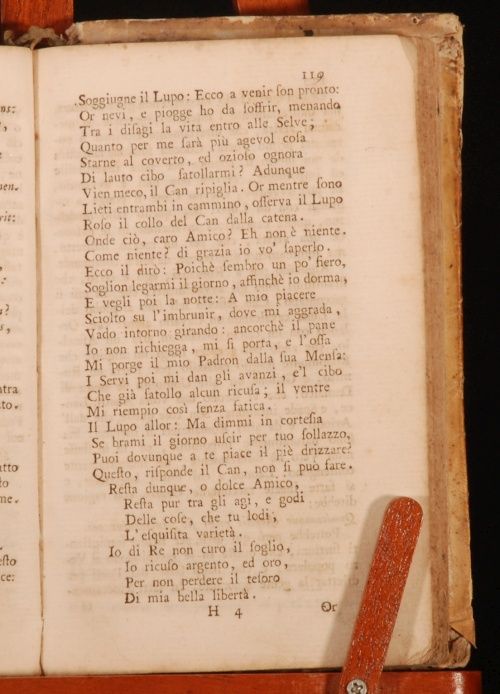 ns:
,
e
nen.
rit:
a?
s,
ntra
to.
atto
to
me.
esto
ce:
119
Soggiugne il Lupo: Ecco a venir ſon pronto:
Or nevi, e piogge ho da ſoffrir, menando
Tra i diſagi la vita entro alle Selve;
Quanto per me ſarà più agevol coſa
Starne al coverto, ed ozioſo ognora
Di lauto cibo ſatollarmi? Adunque
Vien meco, il Can ripiglia. Or mentre ſono
Lieti entrambi in cammino, oſſerva il Lupo
Roſo il collo del Can dalla catena.
Onde ciò, caro Amico? Eh non è niente.
Come niente? di grazia io vo' ſaperlo.
Ecco il dirò: Poichè ſembro un po' fiero,
Soglion legarmi il giorno, affinchè io dorma,
E vegli poi la notte: A mio piacere
Sciolto su l'imbrunir, dove mi aggrada,
Vado intorno girando: ancorchè il pane
Io non richiegga, mi ſi porta, e l'oſſa
Mi porge il mio Padron dalla sua Menſa:
I Servi poi mi dan gli avanzi, e'l cibo
Che già ſatollo alcun ricuſa; il ventre
Mi riempio così ſenza fatica.
Il Lupo allor: Ma dimmi in corteſia
Se brami il giorno uſcir per tuo ſollazzo,
Puoi dovunque a te piace il piè drizzare?
Queſto, riſponde il Can, non ſi può fare.
Reſta dunque, o dolce Amico,
Reſta pur tra gli agi, e godi
Delle coſe, che tu lodi,
L'eſquiſita varietà.
Io di Re non curo il ſoglio,
Io ricuſo argento, ed oro,
Per non perdere il teſoro
Di mia bella libertà.
H 4 Or